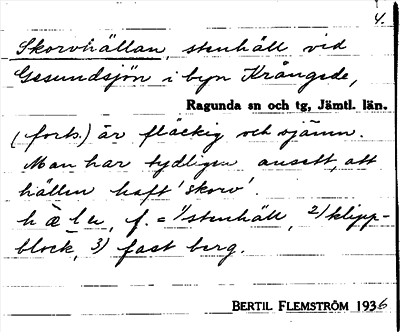 4.
Skorvhällan, stenhäll vid
Gesundsjön i byn Krångede,
Ragunda sn och tg, Jämtl. län.
(forts.) är fläckig och ojämn.
Man har tydligen ansett, att
hällen haft 'skorv'.
hælu, f. = 1) stenhäll, 2) klipp-
block, 3) fast berg.
BERTIL FLEMSTRÖM 1936